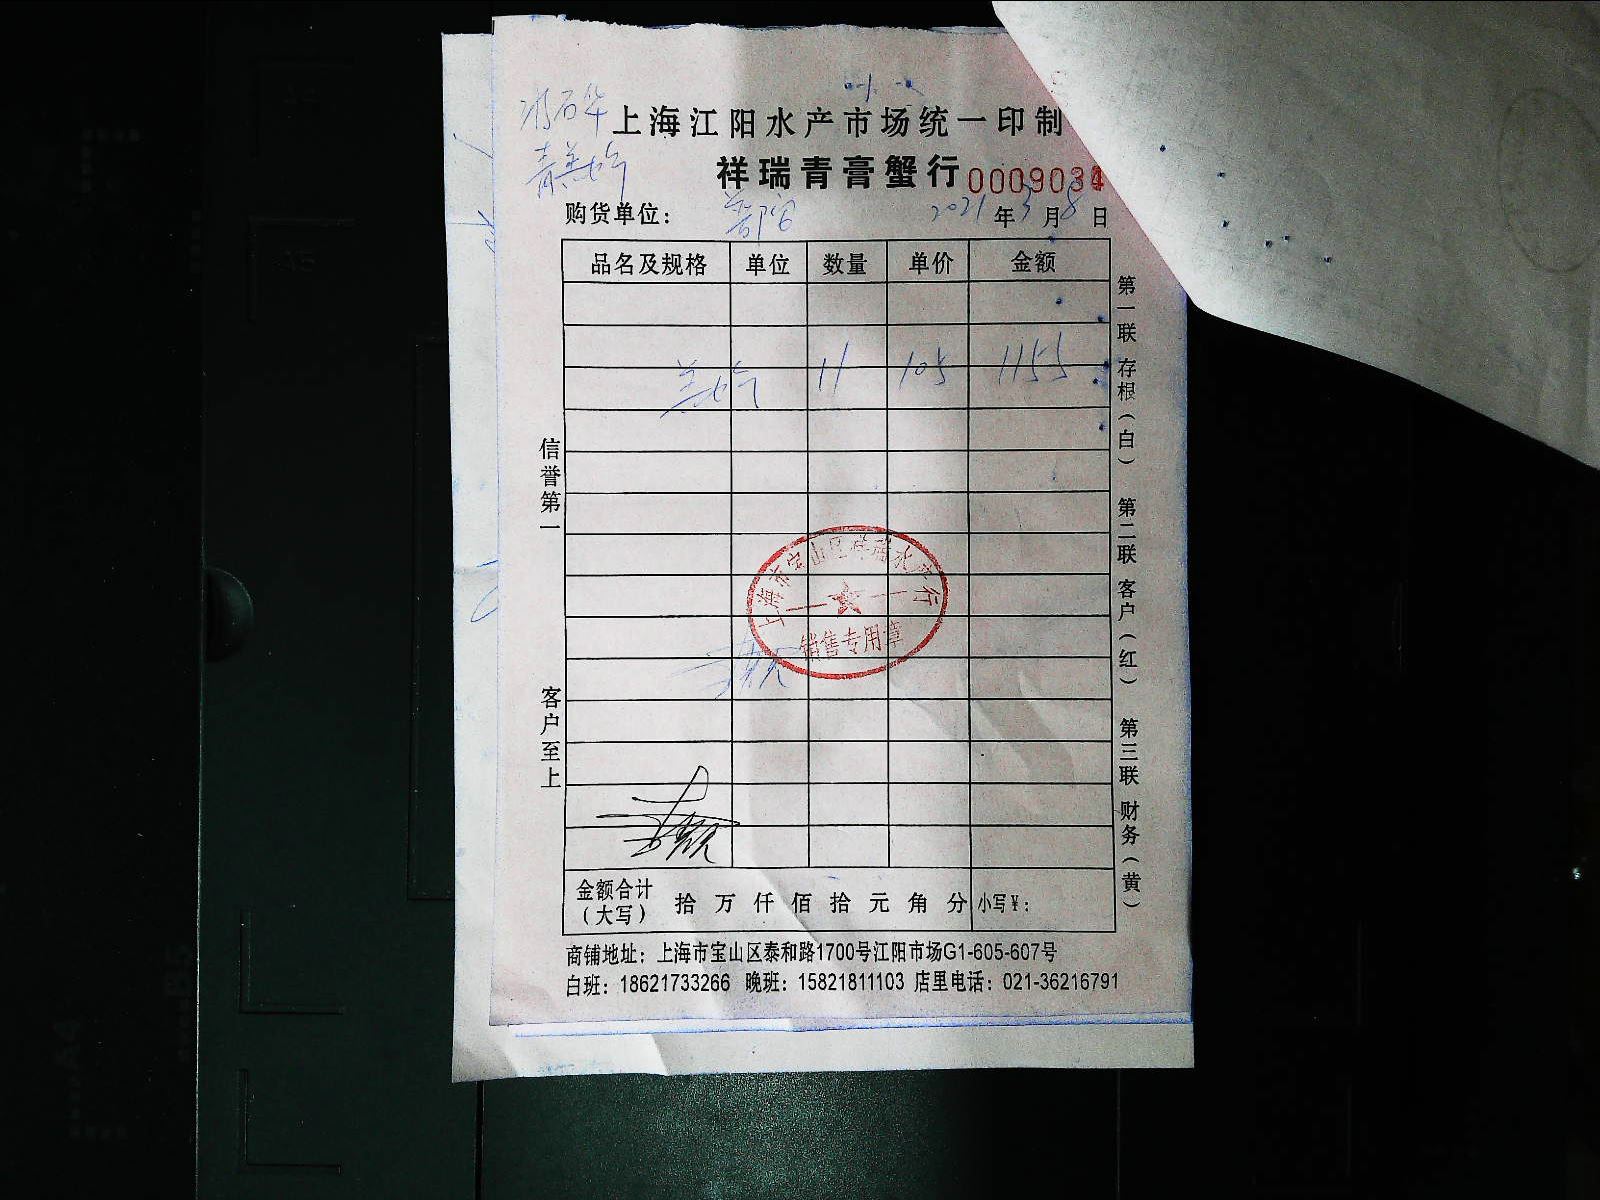 上海江阳水产市场统一印制
祥瑞青膏蟹行 0009034
购货单位： 2021年3月8日
品名及规格 单位 数量 单价 金额
11 105 1155
信誉第一
客户至上
第一联 存根（白） 第二联 客户（红） 第三联 财务（黄）
上海市宝山区祥瑞水产行
销售专用章
金额合计（大写） 拾 万 仟 佰 拾 元 角 分 小写¥：
商铺地址：上海市宝山区泰和路1700号江阳市场G1-605-607号
白班：18621733266 晚班：15821811103 店里电话：021-36216791